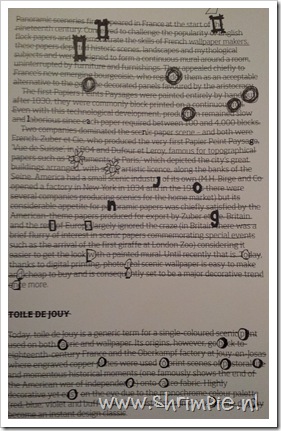 Panoramic sceneries first appeared in France at the start of
nineteenth century Conceived to challenge the popularity of English
flock papers and the skills of French wallpaper makers,
these papers depicted historic scenes, landscapes and mythological
designed to form a continuous mural around a room,
uninterrupted by and furnishings. They appealed chiefly to
France's new bourgeoisie, who saw them as an acceptable
alternative to the decorated panels favoured by the aristocracy.
The First Papiers Peints Paysages were printed entirely by hand
after 1830, they were commonly block printed on a continuous
Even with this technological development, production remained slow
and laborious since each paper required between 100 and 4,000 blocks.
Two companies dominated the scenic paper scene - and both were
French: Zuber et Cie, who produced the very first Papier Peint Paysage
'Vue de Suisse' in 1804 and Dufour et Leroy, famous for topographical
papers such as 'Paris', which depicted the city's great
buildings arranged artistic licence, along the banks of the
Seine. America had a small scenic industry of its own (M.H. Birge and Co
opened a factory in New York in 1834 and in the there were
several companies producing sceneries for the home market) but its
considerable appetite for papers was chiefly satisfied by the
American-themed papers produced for export by Zuber et Cie. Britain
and the rest of Europe largely ignored the craze (in Britain there was a
brief flurry of interest in scenic papers commemorating special events
such as the arrival of the first giraffe at London Zoo) considering it
easier to get the look with a painted mural. Until recently that is. Today,
thanks to digital printing, photo scenic wallpaper is easy to make
cheap to buy and is consequently set to be a major decorative trend
once more.
TOILE DE JOUY
Today, toile de jouy is a generic term for a single-coloured scenic print
used on both fabric and wallpaper. Its origins, however, go back to
eighteenth-century France and the Oberkampf factory at Jouy-en-Josas
where engraved copper plates were used to print scenes of
and momentous historical moments (one famously shows the end of
the American war of independence) onto fabric. Highly
decorative yet on the eye due to their monochrome colour palette
red, blue, violet and
become an instant design classic.
www.shrimpie.nl